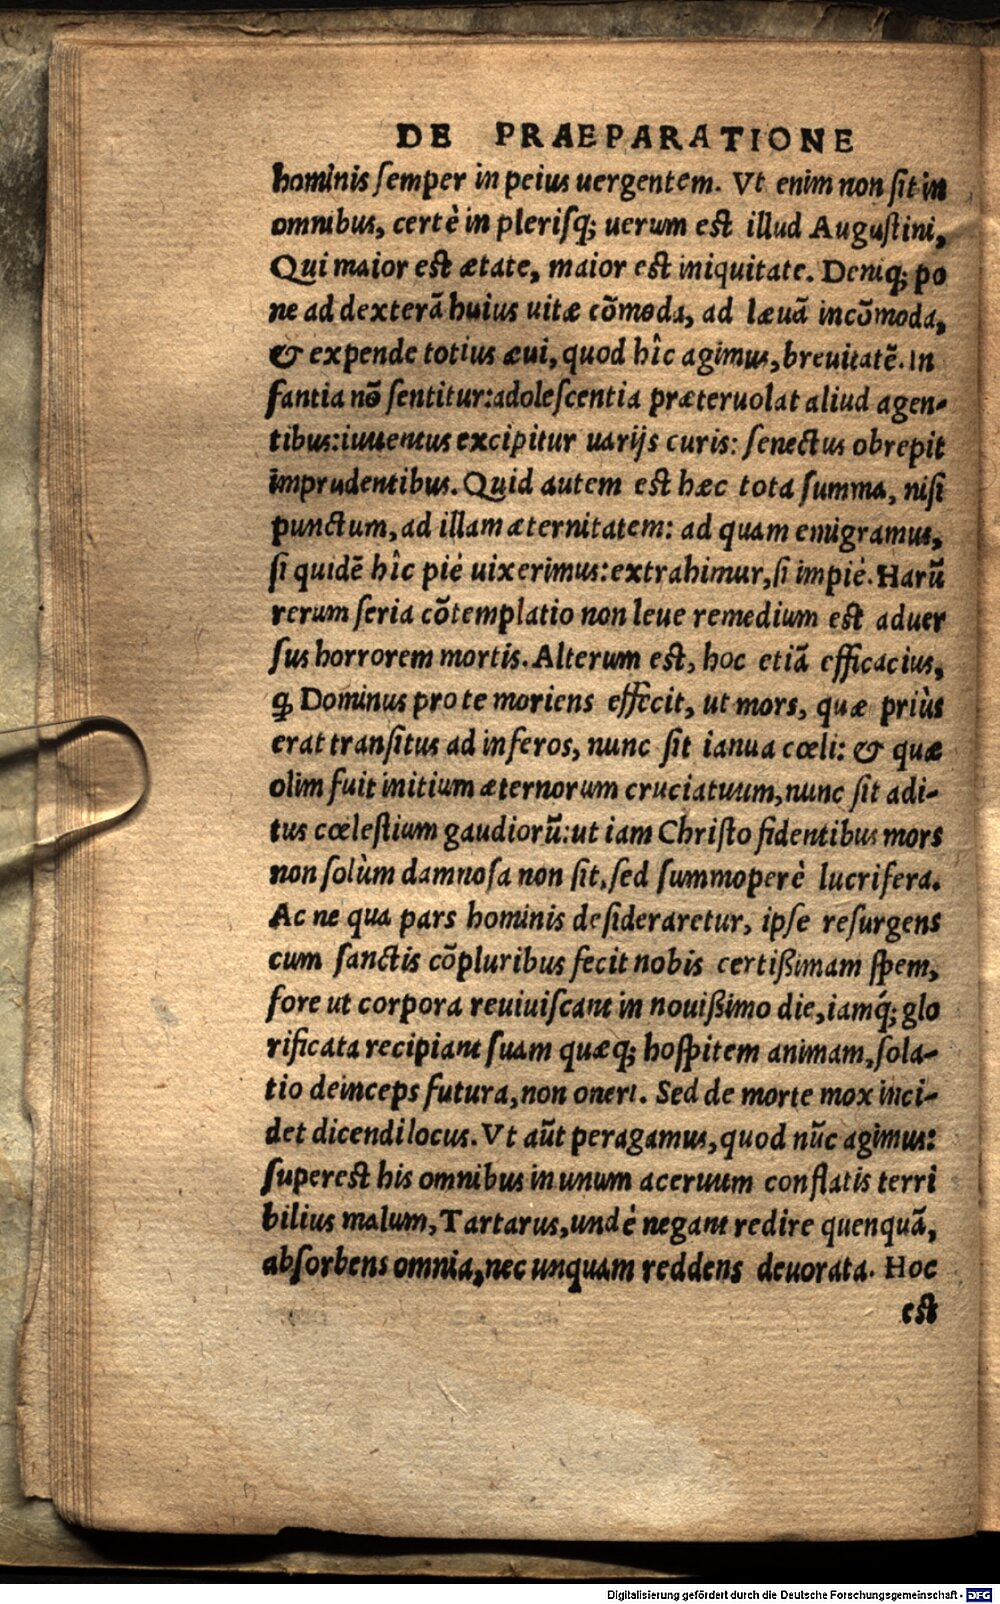 DE PRAEPARATIONE
hominis ſemper in peius uergentem. Vt enim non ſit in
omnibus, certè in pleriſq; uerum est illud Auguſtini,
Qui maior est ætate, maior est iniquitate. Deniq; po
ne ad dexterã huius uitæ cõmoda, ad læuã incõmoda,
& expende totius æui, quod hîc agimus, breuitatẽ. In
fantia nõ ſentitur: adoleſcentia præteruolat aliud agen-
tibus: iuuentus excipitur uarijs curis: ſenectus obrepit
imprudentibus. Quid autem est hæc tota ſumma, niſi
punctum, ad illam æternitatem: ad quam emigramus,
ſi quidẽ hîc piè uixerimus: extrahimur, ſi impiè. Harũ
rerum ſeria cõtemplatio non leue remedium est aduer
ſus horrorem mortis. Alterum est, hoc etiã efficacius,
ꝙ Dominus pro te moriens effecit, ut mors, quæ priùs
erat tranſitus ad inferos, nunc ſit ianua cœli: & quæ
olim fuit initium æternorum cruciatuum, nunc ſit adi-
tus cœleſtium gaudiorũ: ut iam Chriſto fidentibus mors
non ſolùm damnoſa non ſit, ſed ſummoperè lucrifera.
Ac ne qua pars hominis deſideraretur, ipſe reſurgens
cum ſanctis cõpluribus fecit nobis certißimam ſpem,
fore ut corpora reuiuiſcant in nouißimo die, iamq́; glo
rificata recipiant ſuam quæq; hoſpitem animam, ſola-
tio deinceps futura, non oneri. Sed de morte mox inci-
det dicendi locus. Vt aũt peragamus, quod nũc agimus:
ſuperest his omnibus in unum aceruum conflatis terri
bilius malum, Tartarus, undè negant redire quenquã,
abſorbens omnia, nec unquam reddens deuorata. Hoc
est
Digitalisierung gefördert durch die Deutsche Forschungsgemeinschaft - DFG